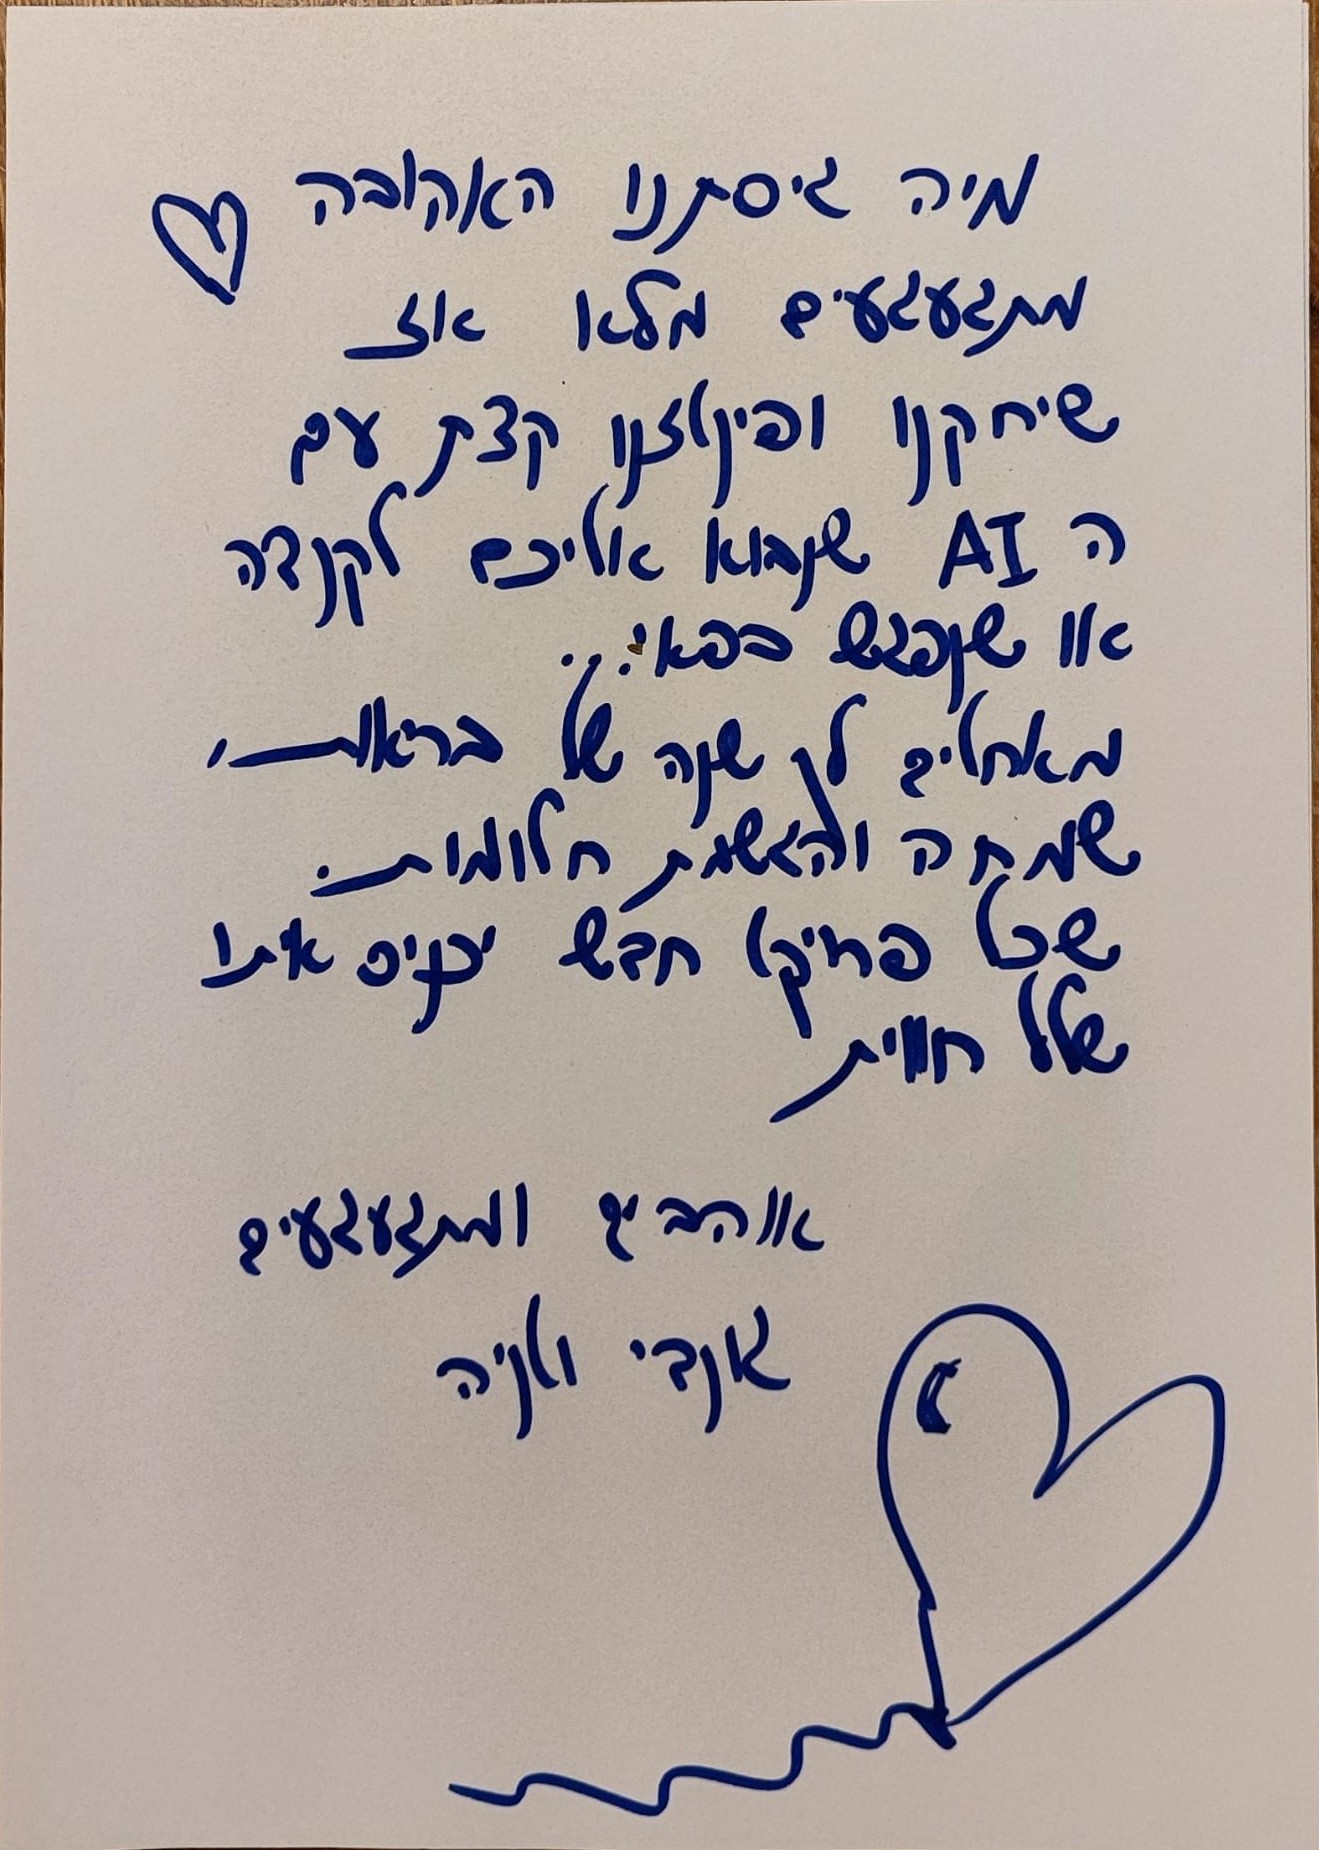 מיה גיסתנו האהובה
מתגעגעים מלא אז
שיחקנו ופינטזנו קצת עם
ה AI שנבוא אליכם לקנדה
או שנפגש בפאי...
מאחלים לך שנה של בריאות,
שמחה והגשמת חלומות.
שכל פרויקט חדש יכניס איתו
שלל חוויות
אוהבים ומתגעגעים
אנדי וטניה